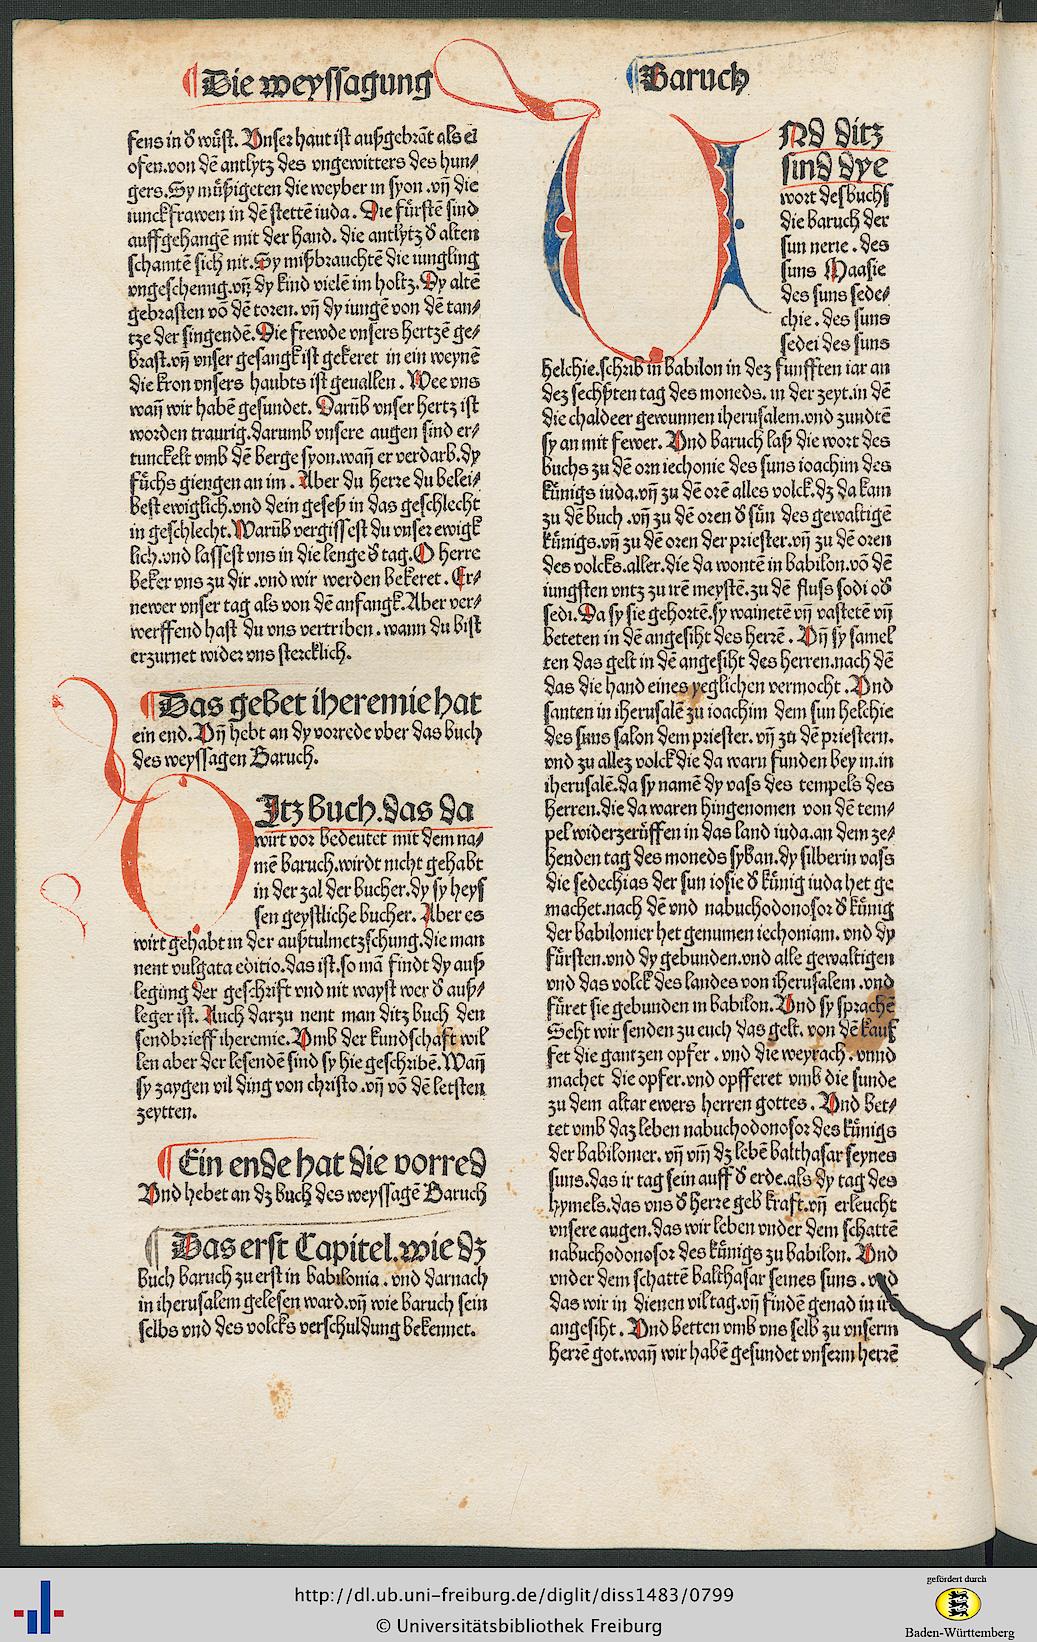 Die weyssagung
fens in ď wüst. Vnser haut ist außgebrāt als ei
ofen.von dē antlytz des vngewitters des hun⸗
gers.Sy müßigeten die weyber in syon.vn̄ die
iunckfrawen in dē stettē iuda. Die fürstē sind
auffgehangē mit der hand. die antlytz ď alten
schamtē sich nit.Sy mißbrauchtē die iungling
vngeschemig.vn̄ dy kind vielē im holtz.Dy altē
gebrasten vō dē toren. vn̄ dy iungē von dē tan⸗
tze der singendē.Die frewde vnsers hertzē ge⸗
brast.vn̄ vnser gesangk ist gekeret in ein weynē
die kron vnsers haubts ist geuallen. Wee vns
wan̄ wir habē gesundet. Darūb vnser hertz ist
worden traurig.darumb vnsere augen sind er⸗
tunckelt vmb dē berge syon.wan̄ er verdarb.dy
füchs giengen an im. Aber du herre du belei⸗
best ewiglich.vnd dein geseß in das geschlecht
in geschlecht.Warūb vergissest du vnser ewigk
lich.vnd lassest vns in die lenge ď tag.O herre
beker vns zu dir.vnd wir werden bekeret. Er⸗
newer vnser tag als von dē anfangk.Aber ver⸗
werffend hast du vns vertriben. wann du bist
erzurnet wider vns stercklich.
Das gebet iheremie hat
ein end.Vn̄ hebt an dy vorrede vber das buch
des weyssagen Baruch.
DItz buch.das da
wirt vor bedeutet mit dem na⸗
mē baruch.wirdt nicht gehabt
in der zal der bucher.dy sy heys
sen geystliche bucher. Aber es
wirt gehabt in der außtulmetzschung.die man
nent vulgata editio.das ist.so mā findt dy auß
legung der geschrift vnd nit wayst wer ď auß⸗
leger ist. Auch darzu nent man ditz buch den
sendbrieff iheremie.Vmb der kundschaft wil
len aber der lesendē sind sy hie geschribē.Wan̄
sy zaygen vil ding von christo.vn̄ vō dē letsten
zeytten.
Ein ende hat die vorred
Vnd hebet an dz buch des weyssagē Baruch
Das erst Capitel.wie dz
buch baruch zu erst in babilonia. vnd darnach
in iherusalem gelesen ward.vn̄ wie baruch sein
selbs vnd des volcks verschuldung bekennet.
Baruch
VNd ditz
sind dye
wort des buchs
die baruch der
sun nerie. des
suns Maasie
des suns sede⸗
chie. des suns
sedei des suns
helchie.schrib in babilon in dez funfften iar an
dez sechßten tag des moneds. in der zeyt.in dē
die chaldeer gewunnen iherusalem.vnd zundtē
sy an mit fewer. Vnd baruch laß die wort des
buchs zu dē orn iechonie des suns ioachim des
künigs iuda.vn̄ zu dē orē alles volck.dz da kam
zu dē buch.vn̄ zu dē oren ď sün des gewaltigē
künigs.vn̄ zu dē oren der priester.vn̄ zu dē oren
des volcks.aller.die da wontē in babilon.vō dē
iungsten vntz zu irē meystē.zu dē fluss sodi oď
sedi.Da sy sie gehortē.sy wainetē vn̄ vastetē vn̄
beteten in dē angesiht des herrē. Vn̄ sy samel
ten das gelt in dē angesiht des herren.nach dē
das die hand eines yeglichen vermocht. Vnd
santen in iherusalē zu ioachim dem sun helchie
des suns salon dem priester. vn̄ zu dē priestern.
vnd zu allez volck die da warn funden bey im.in
iherusalē.da sy namē dy vass des tempels des
herren.die da waren hingenomen von dē tem⸗
pel widerzerüffen in das land iuda.an dem ze⸗
henden tag des moneds syban.dy silberin vass
die sedechias der sun iosie ď künig iuda het ge
machet.nach dē vnd nabuchodonosor ď künig
der babilonier het genumen iechoniam. vnd dy
fürsten.vnd dy gebunden.vnd alle gewaltigen
vnd das volck des landes von iherusalem.vnd
füret sie gebunden in babilon.Vnd sy sprachē
Seht wir senden zu euch das gelt. von dē kauf
fet die gantzen opfer. vnd die weyrach. vnnd
machet die opfer.vnd opfferet vmb die sunde
zu dem altar ewers herren gottes. Vnd bet⸗
tet vmb daz leben nabuchodonosor des künigs
der babilonier. vn̄ vm̄ dz lebē balthasar seynes
suns.das ir tag sein auff ď erde.als dy tag des
hymels.das vns ď herre geb kraft.vn̄ erleucht
vnsere augen.das wir leben vnder dem schattē
nabuchodonosor des künigs zu babilon. Vnd
vnder dem schattē balthasar seines suns. vnd
das wir in dienen vil tag.vn̄ findē genad in irē
angesiht. Vnd betten vmb vns selb zu vnserm
herrē got.wan̄ wir habē gesundet vnserm herrē
http://dl.ub.uni-freiburg.de/diglit/diss1483/0799
© Universitätsbibliothek Freiburg
gefördert durch
Baden-Württemberg